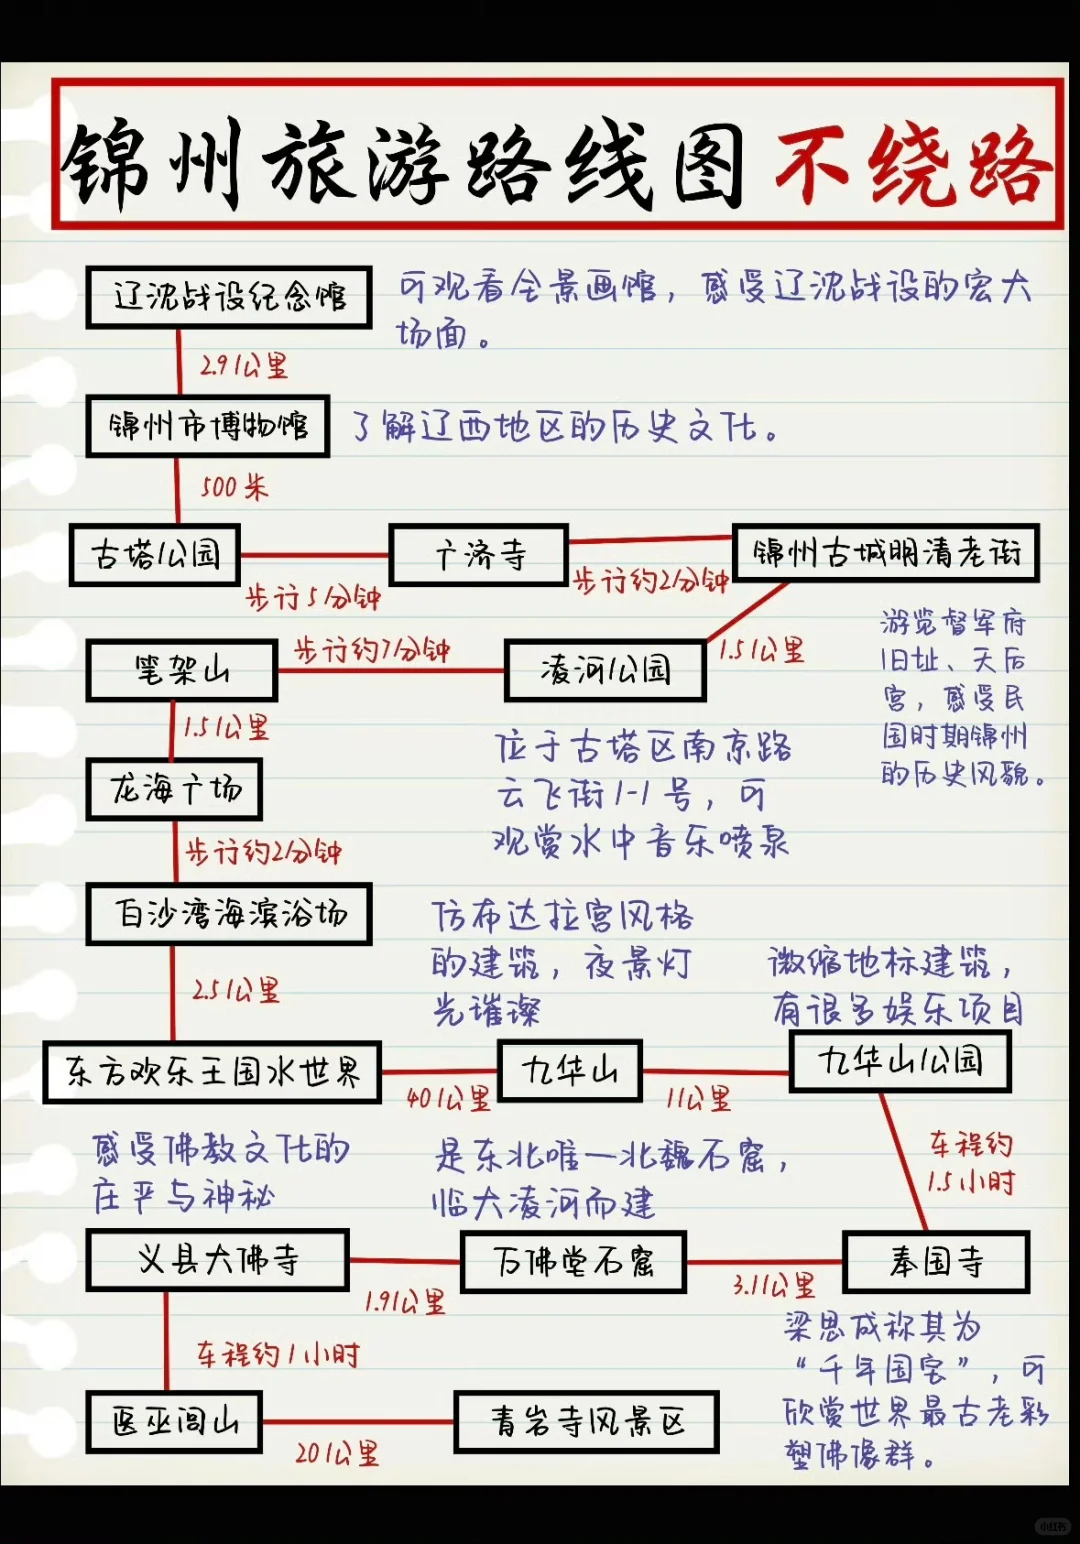 锦州旅游路线图 不绕路
辽沈战役纪念馆
可观看全景画馆，感受辽沈战役的宏大
场面。
2.9公里
锦州市博物馆
了解辽西地区的历史文化。
500米
古塔公园
步行5分钟
广济寺
步行约2分钟
锦州古城明清老街
游览督军府
旧址、天后
宫，感受民
国时期锦州
的历史风貌。
1.5公里
凌河公园
步行约7分钟
笔架山
位于古塔区南京路
云飞街1-1号，可
观赏水中音乐喷泉
1.5公里
龙海广场
步行约2分钟
白沙湾海滨浴场
2.5公里
仿布达拉宫风格
的建筑，夜景灯
光璀璨
微缩地标建筑，
有很多娱乐项目
东方欢乐王国水世界
40公里
九华山
11公里
九华山公园
车程约
1.5小时
感受佛教文化的
庄严与神秘
是东北唯一北魏石窟，
临大凌河而建
义县大佛寺
1.9公里
万佛堂石窟
3.1公里
奉国寺
梁思成称其为
“千年国宝”，可
欣赏世界最古老彩
塑佛像群。
车程约1小时
医巫闾山
20公里
青岩寺风景区
小红书